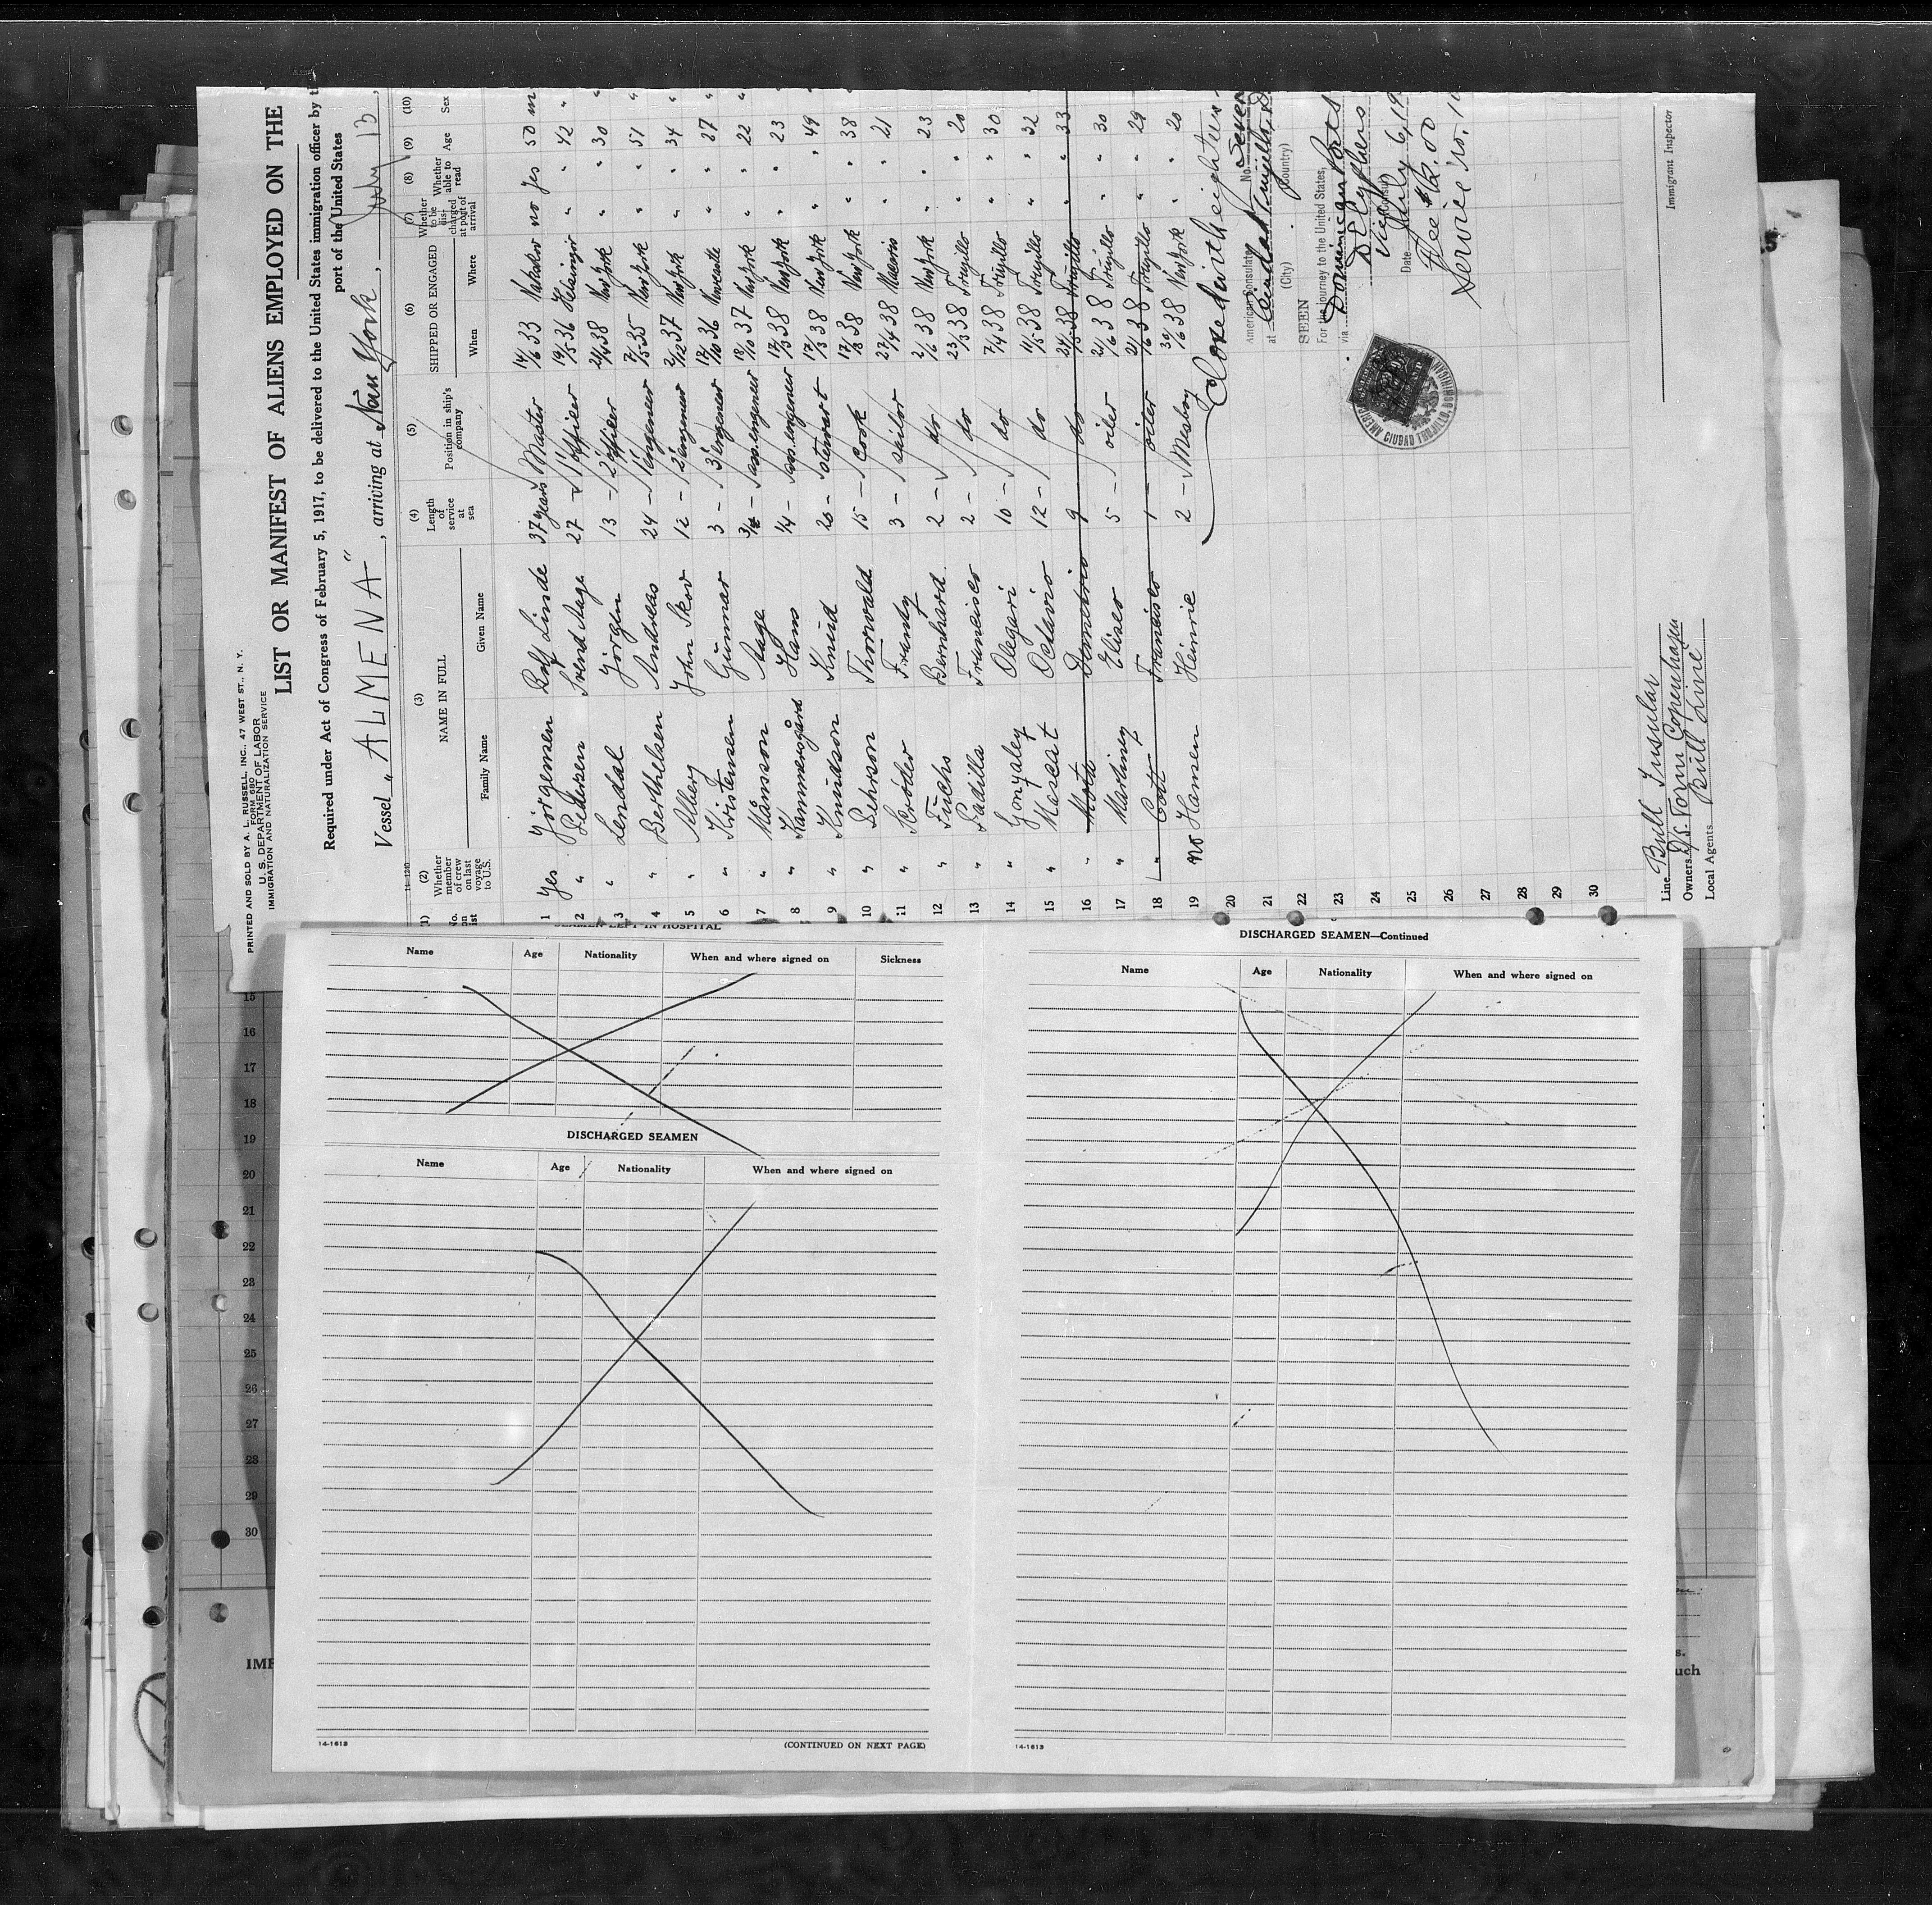 PRINTED AND SOLD BY A. L. RUSSELL, INC., 47 WEST ST., N. Y.
FORM 680
U. S. DEPARTMENT OF LABOR
IMMIGRATION AND NATURALIZATION SERVICE
LIST OR MANIFEST OF ALIENS EMPLOYED ON THE
Required under Act of Congress of February 5, 1917, to be delivered to the United States immigration officer by
port of the United States
Vessel „ALMENA", arriving at New York, July 13,
14-1240
(1) (2) (3) (4) (5) (6) (7) (8) (9) (10)
No. on list
Whether member of crew on last voyage to U.S.
NAME IN FULL
Family Name Given Name
Length of service at sea
Position in ship's company
SHIPPED OR ENGAGED
When Where
Whether to be discharged at port of arrival
Whether able to read
Age
Sex
1 Yes Jörgensen Rolf Linde 37 years Master 14/6 33 Nakskov no Yes 50 m
2 " Pedersen Svend Aage 27 - 1' officer 19/5 36 Helsingör " " 42 "
3 " Lendal Jörgen 13 - 2' officer 21/4 38 New York " " 30 "
4 " Berthelsen Andreas 24 - 1' engeneer 7/5 35 New York " " 51 "
5 " Alberg John Skov 12 - 2' engeneer 2/12 37 New York " " 34 "
6 " Kristensen Gunnar 3 - 3' engeneer 17/10 36 Newcastle " " 27 "
7 " Månsson Aage ass. engeneer 18/10 37 New York " " 22 "
8 " Kammersgård Hans 1/4 - ass. engeneer 17/3 38 New York " " 23
9 " Knudson Knud 20 - stewart 17/3 38 New York " " 49
10 " Behrson Thorvald 15 - Cook 17/3 38 New York " " 38
11 " Scröder Frantz 3 - sailor 27/4 38 21
12 " Fuchs Bernhard 2 - do 2/6 38 New York " " 23
13 " Padilla Francisco 2 - do 23/3 38 Trujillo " " 20
14 " Gonzalez Olegari 10 - do 7/4 38 Trujillo " " 30
15 " Mascat Octavio 12 - do 11/5 38 Trujillo " " 32
16 " Mota Demetrio 9 do 24/5 38 Trujillo " " 33
17 " Martinez Eliseo 5 - oiler 2/6 38 Trujillo " " 30
18 " Cott Francisco 1 - oiler 2/6 38 Trujillo " " 29
19 no Hansen Heinrie 2 - Mesboy 30/6 38 New York " " 20
20
21
22
23
24
25
26
27
28
29
30
Closed with eighteen
American Consulate No. Seven
at Ciudad Trujillo, D
(City) (Country)
SEEN
For the journey to the United States,
via Dominican Ports
Vice Consul
Date July 6, 19
Fee $2.00
Service No. 1
AMERICAN
CIUDAD TRUJILLO, DOMINICAN
Immigrant Inspector
Line Bull Insular
Owners D/S. Torm Copenhagen
Local Agents Bull Line
SEAMEN LEFT IN HOSPITAL
Name Age Nationality When and where signed on Sickness
DISCHARGED SEAMEN
Name Age Nationality When and where signed on
14-1613
(CONTINUED ON NEXT PAGE)
DISCHARGED SEAMEN—Continued
Name Age Nationality When and where signed on
14-1613
15
16
17
18
19
20
21
22
23
24
25
26
27
28
29
30
IMP
s.
uch